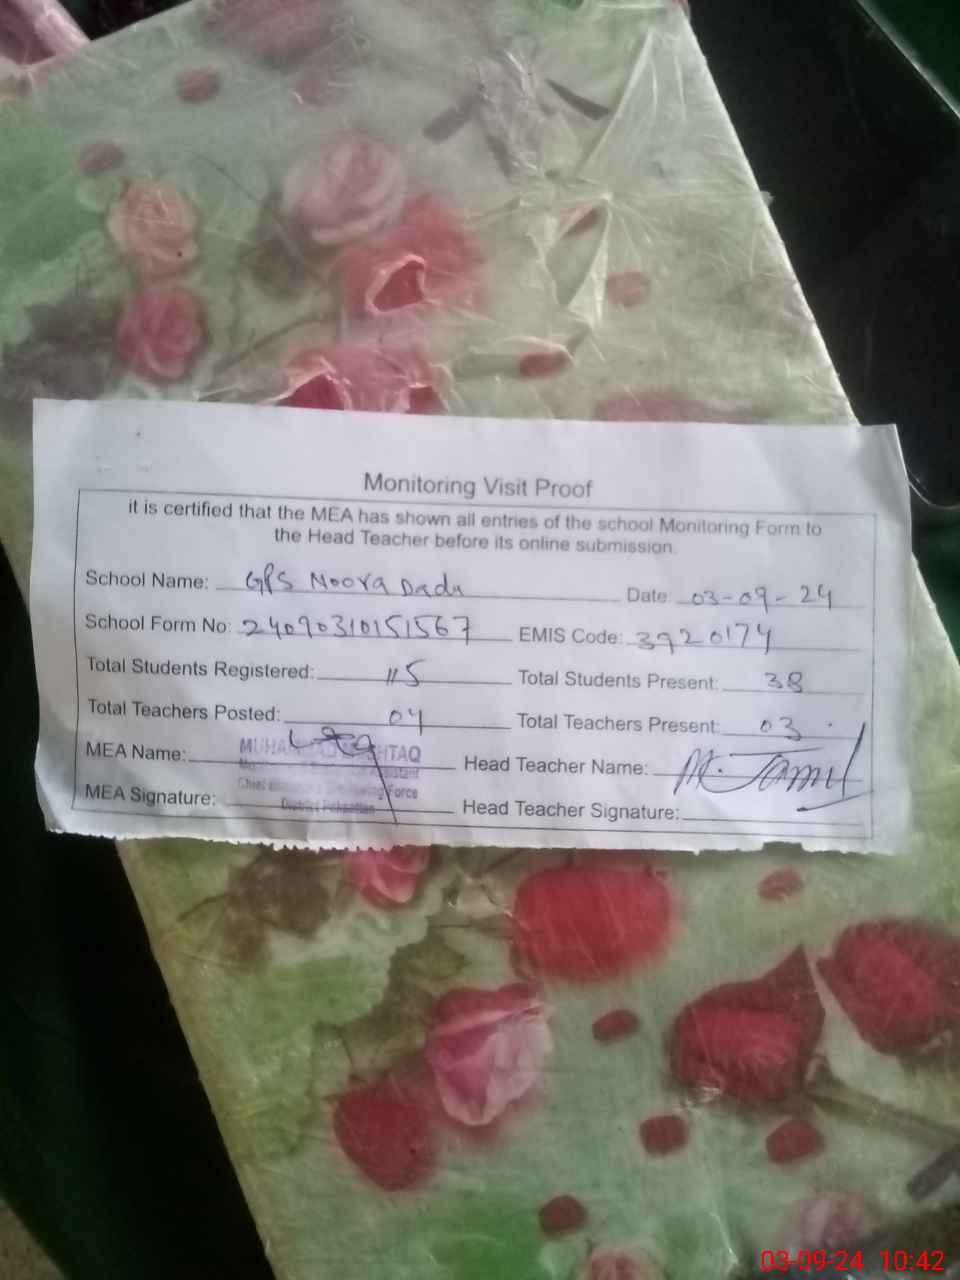 Monitoring Visit Proof
it is certified that the MEA has shown all entries of the school Monitoring Form to
the Head Teacher before its online submission.
School Name: GPS Noora Dadu Date: 03-09-24
School Form No: 24090310151567 EMIS Code: 3920174
Total Students Registered: 115 Total Students Present: 38
Total Teachers Posted: 04 Total Teachers Present: 03
MEA Name: Head Teacher Name: M. Jamil
MEA Signature: Head Teacher Signature:
Force
District
03-09-24 10:42